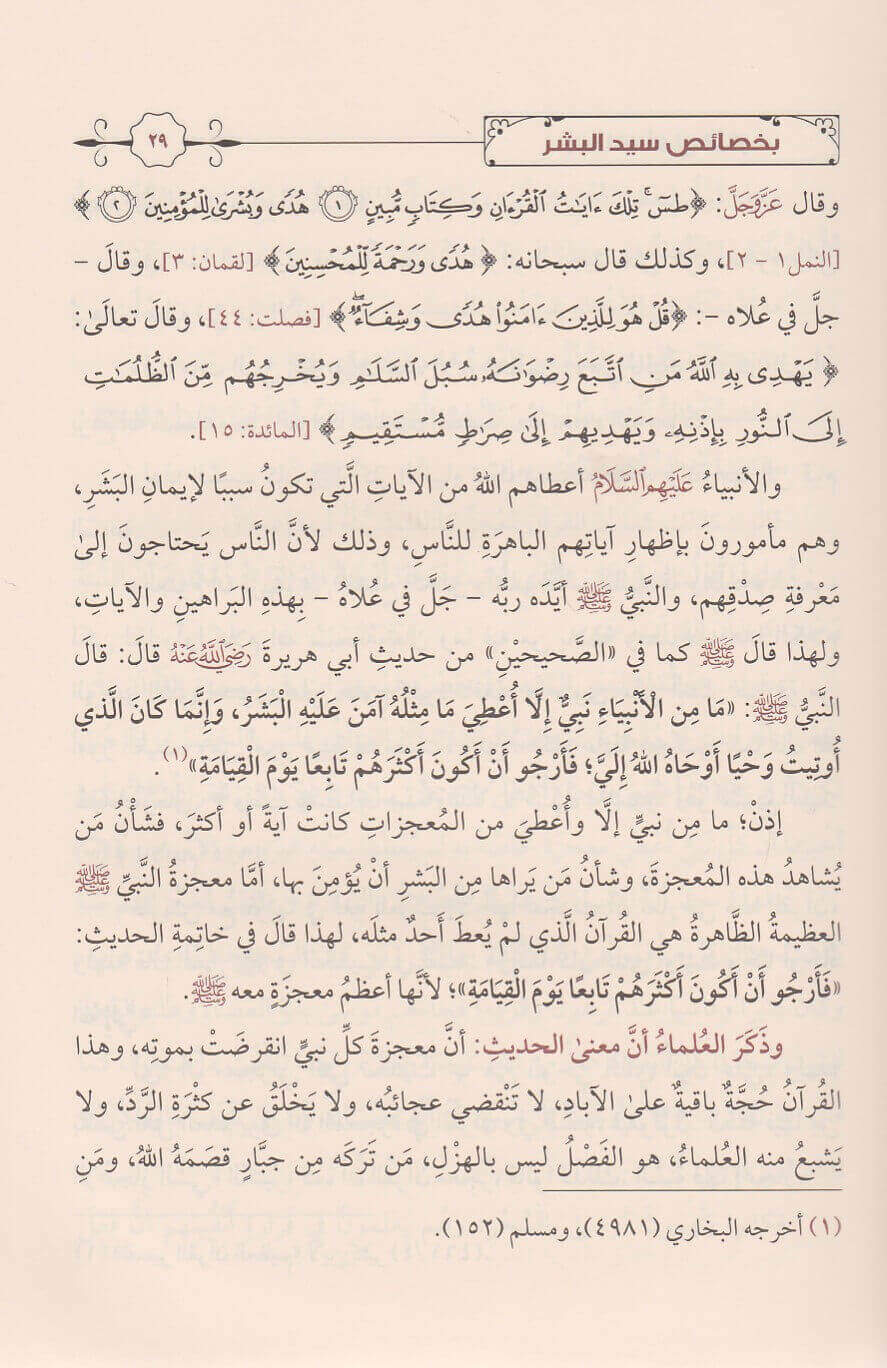 بخصائص سيد البشر
٢٩
وقال عَزَّوَجَلَّ: ﴿طسٓ ۚ تِلْكَ ءَايَٰتُ ٱلْقُرْءَانِ وَكِتَابٍ مُّبِينٍ ۝١ هُدًى وَبُشْرَىٰ لِلْمُؤْمِنِينَ ۝٢﴾
[النمل١ – ٢]، وكذلك قال سبحانه: ﴿هُدًى وَرَحْمَةً لِّلْمُحْسِنِينَ﴾ [لقمان: ٣]، وقالَ –
جلَّ في عُلاه –: ﴿قُلْ هُوَ لِلَّذِينَ ءَامَنُوا۟ هُدًى وَشِفَآءٌ ۖ﴾ [فصلت: ٤٤]، وقالَ تعالَىٰ:
﴿يَهْدِى بِهِ ٱللَّهُ مَنِ ٱتَّبَعَ رِضْوَانَهُۥ سُبُلَ ٱلسَّلَٰمِ وَيُخْرِجُهُم مِّنَ ٱلظُّلُمَٰتِ
إِلَى ٱلنُّورِ بِإِذْنِهِۦ وَيَهْدِيهِمْ إِلَىٰ صِرَٰطٍ مُّسْتَقِيمٍ﴾ [المائدة: ١٥].
والأنبياءُ عَلَيْهِمُالسَّلَامُ أعطاهم اللهُ من الآياتِ الَّتي تكونُ سببًا لإيمانِ البَشَرِ،
وهم مأمورونَ بإظهارِ آياتِهم الباهرَةِ للنَّاسِ، وذلك لأنَّ النَّاس يَحتاجونَ إلىٰ
مَعْرفةِ صِدْقِهم، والنَّبيُّ ﷺ أيَّدَه ربُّه – جَلَّ في عُلاهُ – بِهذِه البَراهينِ والآياتِ،
ولهذا قالَ ﷺ كما في «الصَّحيحيْنِ» من حديثِ أبي هريرةَ رَضِيَاللَّهُعَنْهُ قالَ: قالَ
النَّبيُّ ﷺ: «مَا مِن الْأَنْبِيَاءِ نَبِيٌّ إِلَّا أُعْطِيَ مَا مِثْلُهُ آمَنَ عَلَيْهِ الْبَشَرُ، وَإِنَّمَا كَانَ الَّذي
أُوتِيتُ وَحْيًا أَوْحَاهُ اللهُ إِلَيَّ؛ فَأَرْجُو أَنْ أَكُونَ أَكْثَرَهُمْ تَابِعًا يَوْمَ الْقِيَامَةِ»(١).
إذنْ؛ ما مِن نبيٍّ إلَّا وأُعْطيَ من المُعجزاتِ كانتْ آيةً أو أكثرَ، فشَأْنُ مَن
يُشاهدُ هذه المُعجزةَ، وشأنُ مَن يَراها مِن البَشرِ أنْ يُؤمِنَ بها، أمَّا معجزةُ النَّبيِّ ﷺ
العظيمةُ الظَّاهرةُ هي القُرآنُ الَّذي لمْ يُعطَ أَحدٌ مثلَه، لهذا قالَ في خاتِمةِ الحديثِ:
«فَأَرْجُو أَنْ أَكُونَ أَكْثَرَهُمْ تَابِعًا يَوْمَ الْقِيَامَةِ»؛ لأنَّها أعظمُ معجزَةٍ معه ﷺ.
وذَكَرَ العُلماءُ أنَّ معنىٰ الحديثِ: أنَّ معجزةَ كلِّ نبيٍّ انقرضَتْ بموتِه، وهذا
القُرآنُ حُجَّةٌ باقيةٌ علىٰ الآبادِ، لا تَنْقضي عجائبُه، ولا يَخْلَقُ عن كثْرةِ الرَّدِّ، ولا
يَشبعُ منه العُلماءُ، هو الفَصْلُ ليس بالهزْلِ، مَن تَركَه مِن جبَّارٍ قصَمَهُ اللهُ، ومَنِ
(١) أخرجه البخاري (٤٩٨١)، ومسلم (١٥٢).